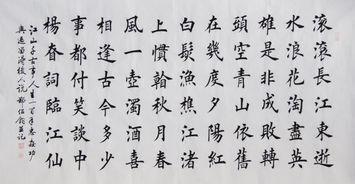 滾滾長江東逝
水浪花淘盡英
雄是非成敗轉
頭空青山依舊
在幾度夕陽紅
白髮漁樵江渚
上慣看秋月春
風一壺濁酒喜
相逢古今多少
事都付笑談中
楊眘詞臨江仙
江山千古事人生一百年
與過留待後人說